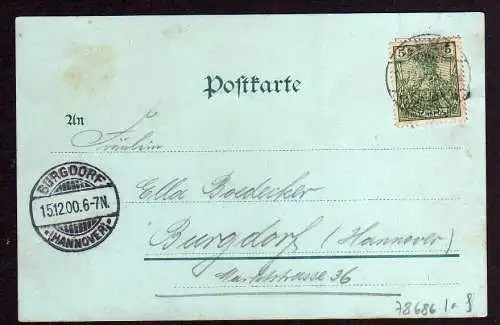 5 5
Postkarte
An
Fräulein
Ella Boedecker
BURGDORF
15.12.00.6-7N.
(HANNOVER)
Burgdorf (Hannover)
Marktstrasse 36
78686